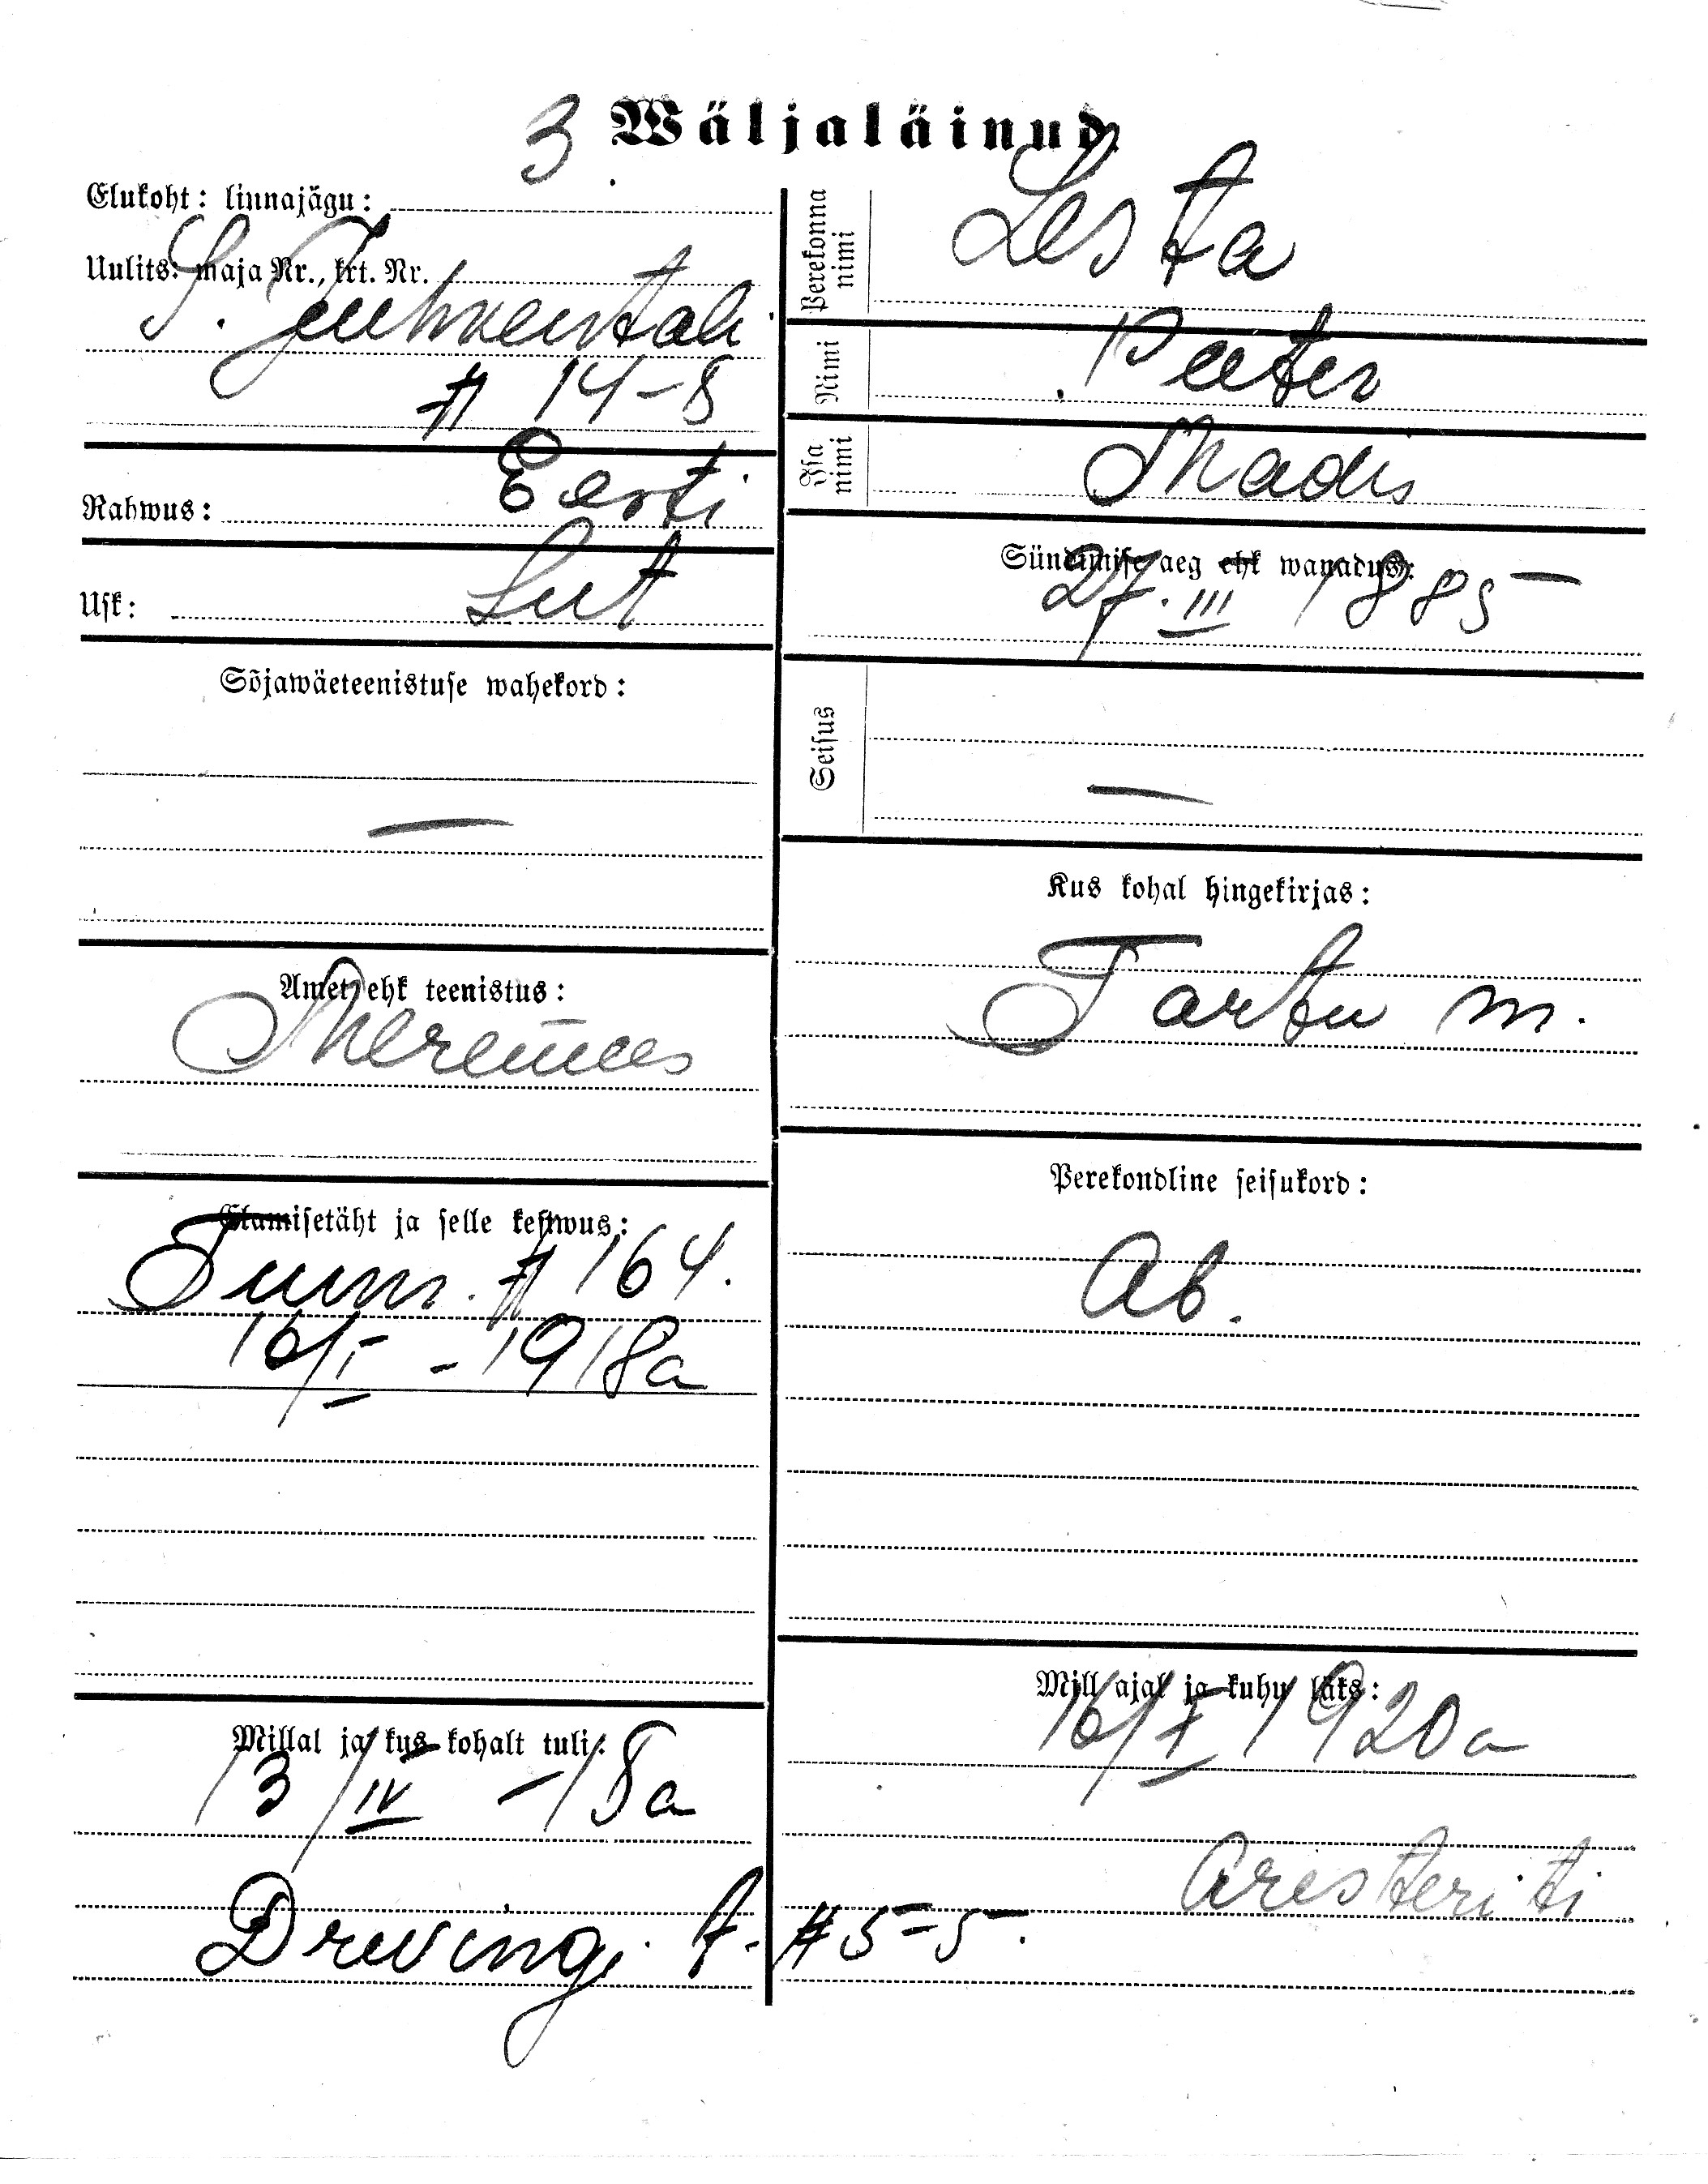 3 Wäljaläinud.
Elukoht: linnajägu:
Uulits: maja Nr., krt. Nr.
S. Juhkentali
# 14-8
Rahwus: Eesti
Usk: Lut
Sõjawäeteenistuse wahekord:
—
Amet ehk teenistus:
Meremees
Elamisetäht ja selle kestwus:
Tunn. # 164.
16/I - 1918a
Millal ja kus kohalt tuli:
13/IV - 18a
Drevingi t. # 5-5.
Perekonna nimi Lesta
Nimi Peeter
Isa nimi Madis
Sündimise aeg ehk wanadus:
27. III 1885
Seisus
—
Kus kohal hingekirjas:
Tartu m.
Perekondline seisukord:
Ab.
Mill ajal ja kuhu läks:
16/X 1920a
Aresteriti